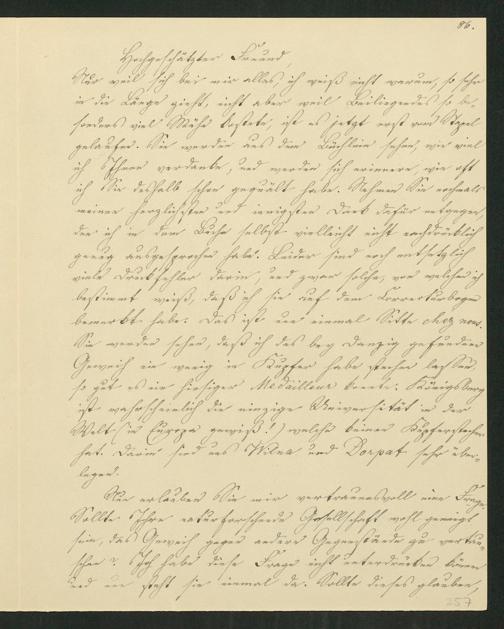 86.
Hochgeschätzter Freund,
Nur weil sich bei mir alles ich weiß nicht warum, so sehr
in die Länge zieht, nicht aber weil Beiliegendes so be-
sonders viel Mühe kostete, ist es jetzt erst vom Stapel
gelaufen. Sie werden aus dem Büchlein sehen, wie viel
ich Ihnen verdanke, und werden sich erinnern, wie oft
ich Sie deshalb schon gequält habe. Nehmen Sie nochmals
meinen herzlichsten und innigsten Dank dafür entgegen,
den ich in dem Buche selbst vielleicht nicht nachdrücklich
genug ausgesprochen habe. Leider sind noch entsetzlich
viele Druckfehler darin, und zwar solche, von welchen ich
bestimmt weiß, daß ich sie auf dem Correcturbogen
bemerkt habe. Das ist nun einmal Sitte chez nous.
Sie werden sehen, daß ich das bey Danzig gefundene
Geweih ein wenig in Kupfer habe stechen lassen,
so gut es ein hiesiger Medailleur konnte. Königsberg
ist wahrscheinlich die einzige Universität in der
Welt (in Europa gewiß!) welche keinen Kupferstecher
hat. Darin sind uns Wilna und Dorpat sehr über-
legen.
Nun erlauben Sie mir vertrauensvoll eine Frage.
Sollte Ihre naturforschende Gesellschaft wohl geneigt
sein, das Geweih gegen andere Gegenstände zu vertau-
schen? Ich habe diese Frage nicht unterdrücken können
und nun steht sie einmal da. Sollte dieses glauben,
257